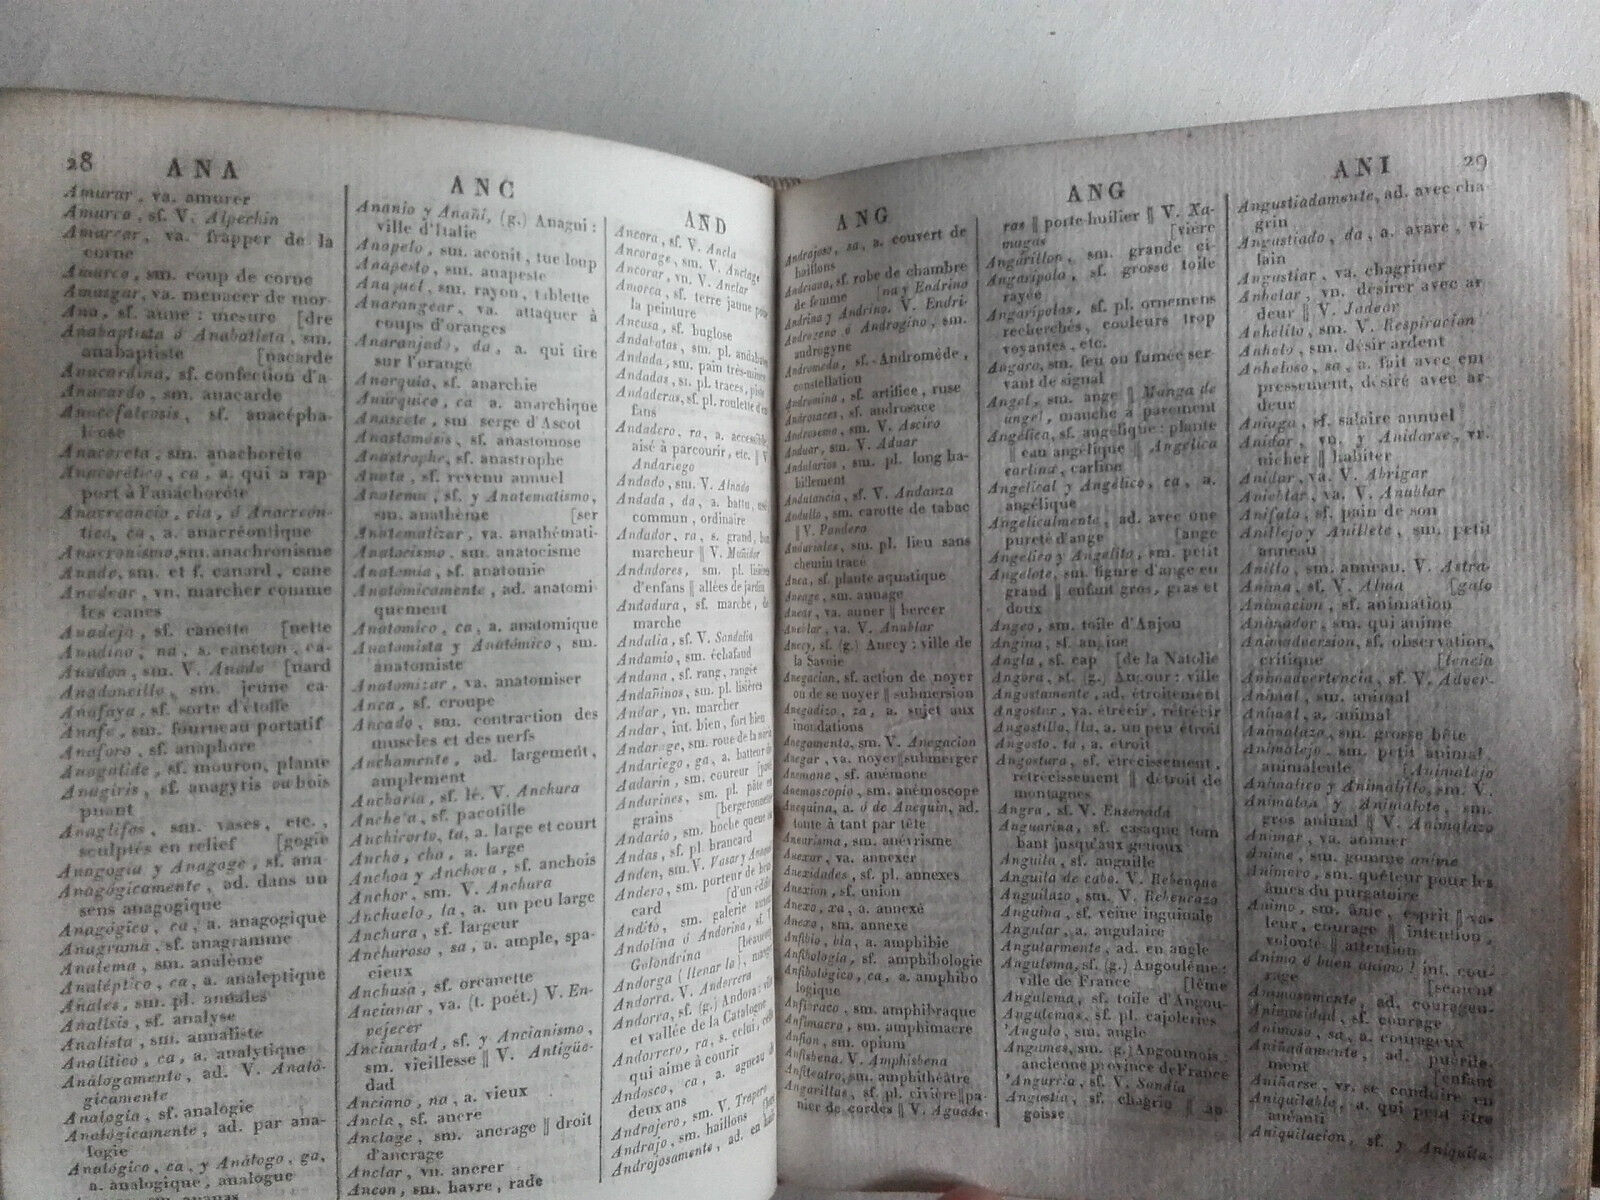 28
ANA
Amurar, va. amurer
Amurca, sf. V. Alpechin
Amurcar, va. frapper de la
corne
Amurco, sm. coup de corne
Amusgar, va. menacer de mor-
Ana, sf. aune : mesure [dre
Anabaptista ó Anabatista, sm.
anabaptiste [nacarde
Anacardina, sf. confection d'a-
Anacardo, sm. anacarde
Anacefaleosis, sf. anacépha-
léose
Anacoreta, sm. anachorète
Anacorético, ca, a. qui a rap-
port à l'anachorète
Anacreoncio, cia, ó Anacreón-
tico, ca, a. anacréontique
Anacronismo, sm. anachronisme
Anade, sm. et f. canard, cane
Anadear, vn. marcher comme
les canes
Anadeja, sf. canette [nette
Anadino, na, s. caneton, ca-
Anadon, sm. V. Anade [nard
Anadoncillo, sm. jeune ca-
Anafaya, sf. sorte d'étoffe
Anafe, sm. fourneau portatif
Anaforo, sf. anaphore
Anagálide, sf. mouron, plante
Anagiris, sf. anagyris ou bois
puant
Anaglifos, sm. vases, etc.,
sculptés en relief [gogie
Anagogia y Anagoge, sf. ana-
Anagógicamente, ad. dans un
sens anagogique
Anagógico, ca, a. anagogique
Anagrama, sf. anagramme
Analema, sm. analème
Analéptico, ca, a. analeptique
Anales, sm. pl. annales
Analisis, sf. analyse
Analista, sm. annaliste
Analítico, ca, a. analytique
Análogamente, ad. V. Analó-
gicamente
Analogía, sf. analogie
Analógicamente, ad. par ana-
logie
Analógico, ca, y Análogo, ga,
a. analogique, analogue
ANC
Ananio y Anañí, (g.) Anagui :
ville d'Italie
Anapelo, sm. aconit, tue loup
Anapesto, sm. anapeste
Anaquel, sm. rayon, tablette
Anarangear, va. attaquer à
coups d'oranges
Anaranjado, da, a. qui tire
sur l'orangé
Anarquía, sf. anarchie
Anárquico, ca a. anarchique
Anascote, sm serge d'Ascot
Anastomósis, sf. anastomose
Anastrophe, sf. anastrophe
Anata, sf. revenu annuel
Anatema, sf. y Anatematismo,
sm. anathème [ser
Anatematizar, va. anathémati-
Anatocismo, sm. anatocisme
Anatomía, sf. anatomie
Anatomicamente, ad. anatomi-
quement
Anatomico, ca, a. anatomique
Anatomista y Anatómico, sm.
anatomiste
Anatomizar, va. anatomiser
Anca, sf. croupe
Ancado, sm. contraction des
muscles et des nerfs
Anchamente, ad. largement,
amplement
Ancharia, sf. lé. V. Anchura
sf. pacotille
Anchicorto, ta, a. large et court
Ancho, cha, a. large
Anchoa y Anchova, sf. anchois
Anchor, sm. V. Anchura
Anchuelo, la, a. un peu large
Anchura, sf. largeur
Anchuroso, sa, a. ample, spa-
cieux
Anchusa, sf. orcanette
Ancianar, va. (t. poét.) V. En-
vejecer
Ancianidad, sf. y Ancianismo,
sm. vieillesse || V. Antigüe-
dad
Anciano, na, a. vieux
Ancla, sf. ancre
Anclage, sm. ancrage || droit
d'ancrage
Anclar, vn. ancrer
Ancon, sm. havre, rade
AND
Ancora, sf. V. Ancla
Ancorage, sm. V. Anclage
Ancorar, vn. V. Anclar
Ancorca, sf. terre jaune pour
la peinture
Ancusa, sf. buglose
Andabatas, sm. pl. andabates
Andada, sm. pain très-mince
Andadas, sf. pl. traces, piste
Andaderas, sf. pl. roulette d'en
fans
Andadero, ra, a. accessible
aisé à parcourir, etc. || V.
Andariego
Andado, sm. V. Alnado
Andado, da, a. battu, usé
commun, ordinaire
Andador, ra, s. grand, bon
marcheur || V. Muñidor
Andadores, sm. pl. lisières
d'enfans || allées de jardin
Andadura, sf. marche, dé
marche
Andalia, sf. V. Sandalia
Andamio, sm. échafaud
Andana, sf. rang, rangée
Andañinos, sm. pl. lisières
Andar, vn. marcher
Andar, int. bien, fort bien
Andarage, sm. roue de la noria
Andariego, ga, a. batteur de
Andarin, sm. coureur [pavé
Andarines, sm. pl. pâte en
grains [bergeronnette
Andario, sm. hoche queue ou
Andas, sf. pl. brancard
Anden, sm. V. Vasar y Anaquel
Andero, sm. porteur de bran
card [d'un édifice
Andito, sm. galerie autour
Andolina ó Andorina, sf. V.
Golondrina [beaucoup
Andorga (llenar la), manger
Andorra. V. Andorrera
Andorra, sf. (g.) Andora : ville
et vallée de la Catalogne
Andorrero, ra, s. celui, celle
qui aime à courir
Andosco, ca, a. agneau de
deux ans
Andrajero, sm. V. Trapero
Andrajo, sm. haillons
Andrajosamente, ad. en haill
ANG
Andrajoso, sa, a. couvert de
haillons
Andriana, sf. robe de chambre
de femme [na y Endrino
Andrina y Andrino. V. Endri-
Androgeno ó Androgino, sm.
androgyne
Andromeda, sf. Andromède,
constellation
Andromina, sf. artifice, ruse
Androsaces, sf. androsace
Androsemo, sm. V. Asciro
Anduar, sm. V. Aduar
Andularios, sm. pl. long ha-
billement
Andulencia, sf. V. Andanza
Andullo, sm. carotte de tabac
|| V. Pandero
Andurriales, sm. pl. lieu sans
chemin tracé
Anea, sf. plante aquatique
Aneage, sm. aunage
Anear, va. auner || bercer
Aneblar, va. V. Anublar
Anecy, sf. (g.) Anecy : ville de
la Savoie
Anegacion, sf. action de noyer
ou de se noyer || submersion
Anegadizo, za, a. sujet aux
inondations
Anegamento, sm. V. Anegacion
Anegar, va. noyer || submerger
Anemone, sf. anémone
Anemoscopio, sm. anémoscope
Anequina, a. ó de Anequin, ad.
toute à tant par tête
Aneurisma, sm. anévrisme
Anexar, va. annexer
Anexidades, sf. pl. annexes
Anexion, sf. union
Anexo, xa, a. annexé
Anexo, sm. annexe
Anfibio, bia, a. amphibie
Anfibología, sf. amphibologie
Anfibológico, ca, a. amphibo
logique
Anfibraco, sm. amphibraque
Anfimacro, sm. amphimacre
Anfion, sm. opium
Anfisbena. V. Amphisbena
Anfiteatro, sm. amphithéâtre
Angarillas, sf. pl. civière || pa-
nier de cordes || V. Aguade-
ANG
ras || porte-huilier || V. Xa-
magas [vière
Angarillon, sm. grande ci-
Angaripola, sf. grosse toile
rayée
Angaripolas, sf. pl. ornemens
recherchés, couleurs trop
voyantes, etc.
Angaro, sm. feu ou fumée ser-
vant de signal
Angel, sm. ange || Manga de
angel, manche à parement
Angélica, sf. angélique : plante
|| eau angélique || Angélica
carlina, carline
Angelical y Angélico, ca, a.
angélique
Angelicalmente, ad. avec une
pureté d'ange [ange
Angelico y Angelito, sm. petit
Angelote, sm. figure d'ange en
grand || enfant gros, gras et
doux
Angeo, sm. toile d'Anjou
Angina, sf. angine
Angla, sf. cap [de la Natolie
Angora, sf. (g.) Angour : ville
Angostamente, ad. étroitement
Angostar, va. étrécir, rétrécir
Angostillo, lla, a. un peu étroit
Angosto, ta, a. étroit
Angostura, sf. étrécissement,
rétrécissement || détroit de
montagnes
Angra, sf. V. Ensenada
Anguarina, sf. casaque tom
bant jusqu'aux genoux
Anguila, sf. anguille
Anguila de cabo. V. Rebenque
Anguilazo, sm. V. Rebencazo
Anguina, sf. veine inguinale
Angular, a. angulaire
Angularmente, ad. en angle
Angulema, sf. (g.) Angoulême :
ville de France [lême
Angulema, sf. toile d'Angou-
Angulemas, sf. pl. cajoleries
Angulo, sm. angle
Angumes, sm. (g.) Angoumois :
ancienne province de France
Angurria, sf. V. Sandía
Angustia, sf. chagrin || an-
goisse
ANI
29
Angustiadamente, ad. avec cha-
grin
Angustiado, da, a. avare, vi
lain
Angustiar, va. chagriner
Anhelar, vn. désirer avec ar
deur || V. Jadear
Anhélito, sm. V. Respiracion
Anhelo, sm. désir ardent
Anheloso, sa, a. fait avec em
pressement, désiré avec ar-
deur
Aniaga, sf. salaire annuel
Anidar, vn. y Anidarse, vr.
nicher || habiter
Anidar, va. V. Abrigar
Anieblar, va. V. Anublar
Anifala, sf. pain de son
Anillejo y Anillete, sm. petit
anneau
Anillo, sm. anneau. V. Astra-
Anima, sf. V. Alma [galo
Animacion, sf. animation
Animador, sm. qui anime
Animadversion, sf. observation,
critique [tencia
Animadvertencia, sf. V. Adver-
Animal, sm. animal
Animal, a. animal
Animalazo, sm. grosse bête
Animalejo, sm. petit animal
animalcule [Animalejo
Animalico y Animalillo, sm. V.
Animalon y Animalote, sm.
gros animal || V. Animalazo
Animar, va. animer
Anime, sm. gomme anime
Animero, sm. quêteur pour les
âmes du purgatoire
Animo, sm. âme, esprit || va-
leur, courage || intention,
volonté || attention
Animo ó buen animo ! int. cou-
rage [sement
Animosamente, ad. courageu-
Animosidad, sf. courage
Animoso, sa, a. courageux
Aniñadamente, ad. puérile-
ment [enfant
Aniñarse, vr. se conduire en
Aniquilable, a. qui peut être
anéanti
Aniquilacion, sf. y Aniquila-